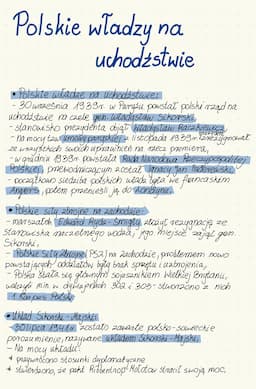 Polskie władzy na
uchodźstwie
• Polskie władze na uchodźstwie:
- 30 września 1939r. w Paryżu powstał polski rząd na
uchodźstwie na czele gen. Władysław Sikorski,
- stanowisko prezydenta objął Władysław Raczkiewicz
- na mocy tzw. listopada 1939r. zrezygnował
ze wszystkich swoich uprawnień na rzecz premiera,
- w grudniu 1939r. powstała Rada Narodowa Rzeczypospolitej
Polskiej, przewodniczącym został Ignacy Jan Paderewski,
- początkowo siedziba polskich władz była we francuskim
Angers, potem przenieśli ją do Londynu.
• Polskie siły zbrojne na zachodzie:
- marszałek Edward Rydz-Śmigły złożył rezygnację ze
stanowiska naczelnego wodza, jego miejsce zajął gen.
Sikorski,
- Polskie Siły Zbrojne (PSZ) na zachodzie, problemem nowo
powstających oddziałów były brak sprzętu i uzbrojenia,
- Polska stała się głównym sojusznikiem Wielkiej Brytanii,
walczyli min. w dywizjonach 302 i 303 - stworzono z nich
I Korpus Polski
• Układ Sikorski - Majski:
- 30 lipca 1941r. zostało zawarte polsko-sowieckie
porozumienie, nazywane układem Sikorski - Majski.
- Na mocy układu:
* przywrócono stosunki dyplomatyczne
* stwierdzono, że pakt Ribbentrop Mołotow stracił swoją moc,